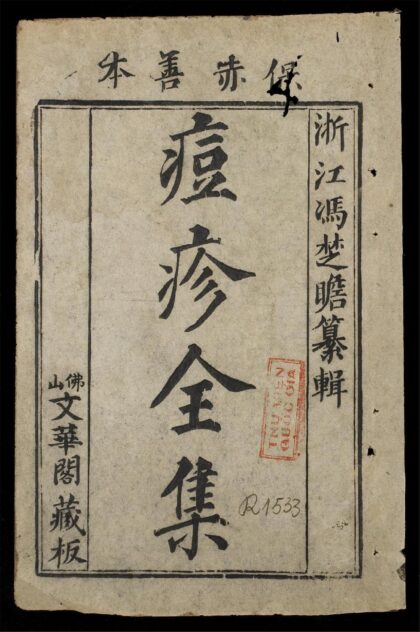 保赤善本
浙江馮楚瞻纂輯
痘疹全集
佛山文華閣藏板
R1533